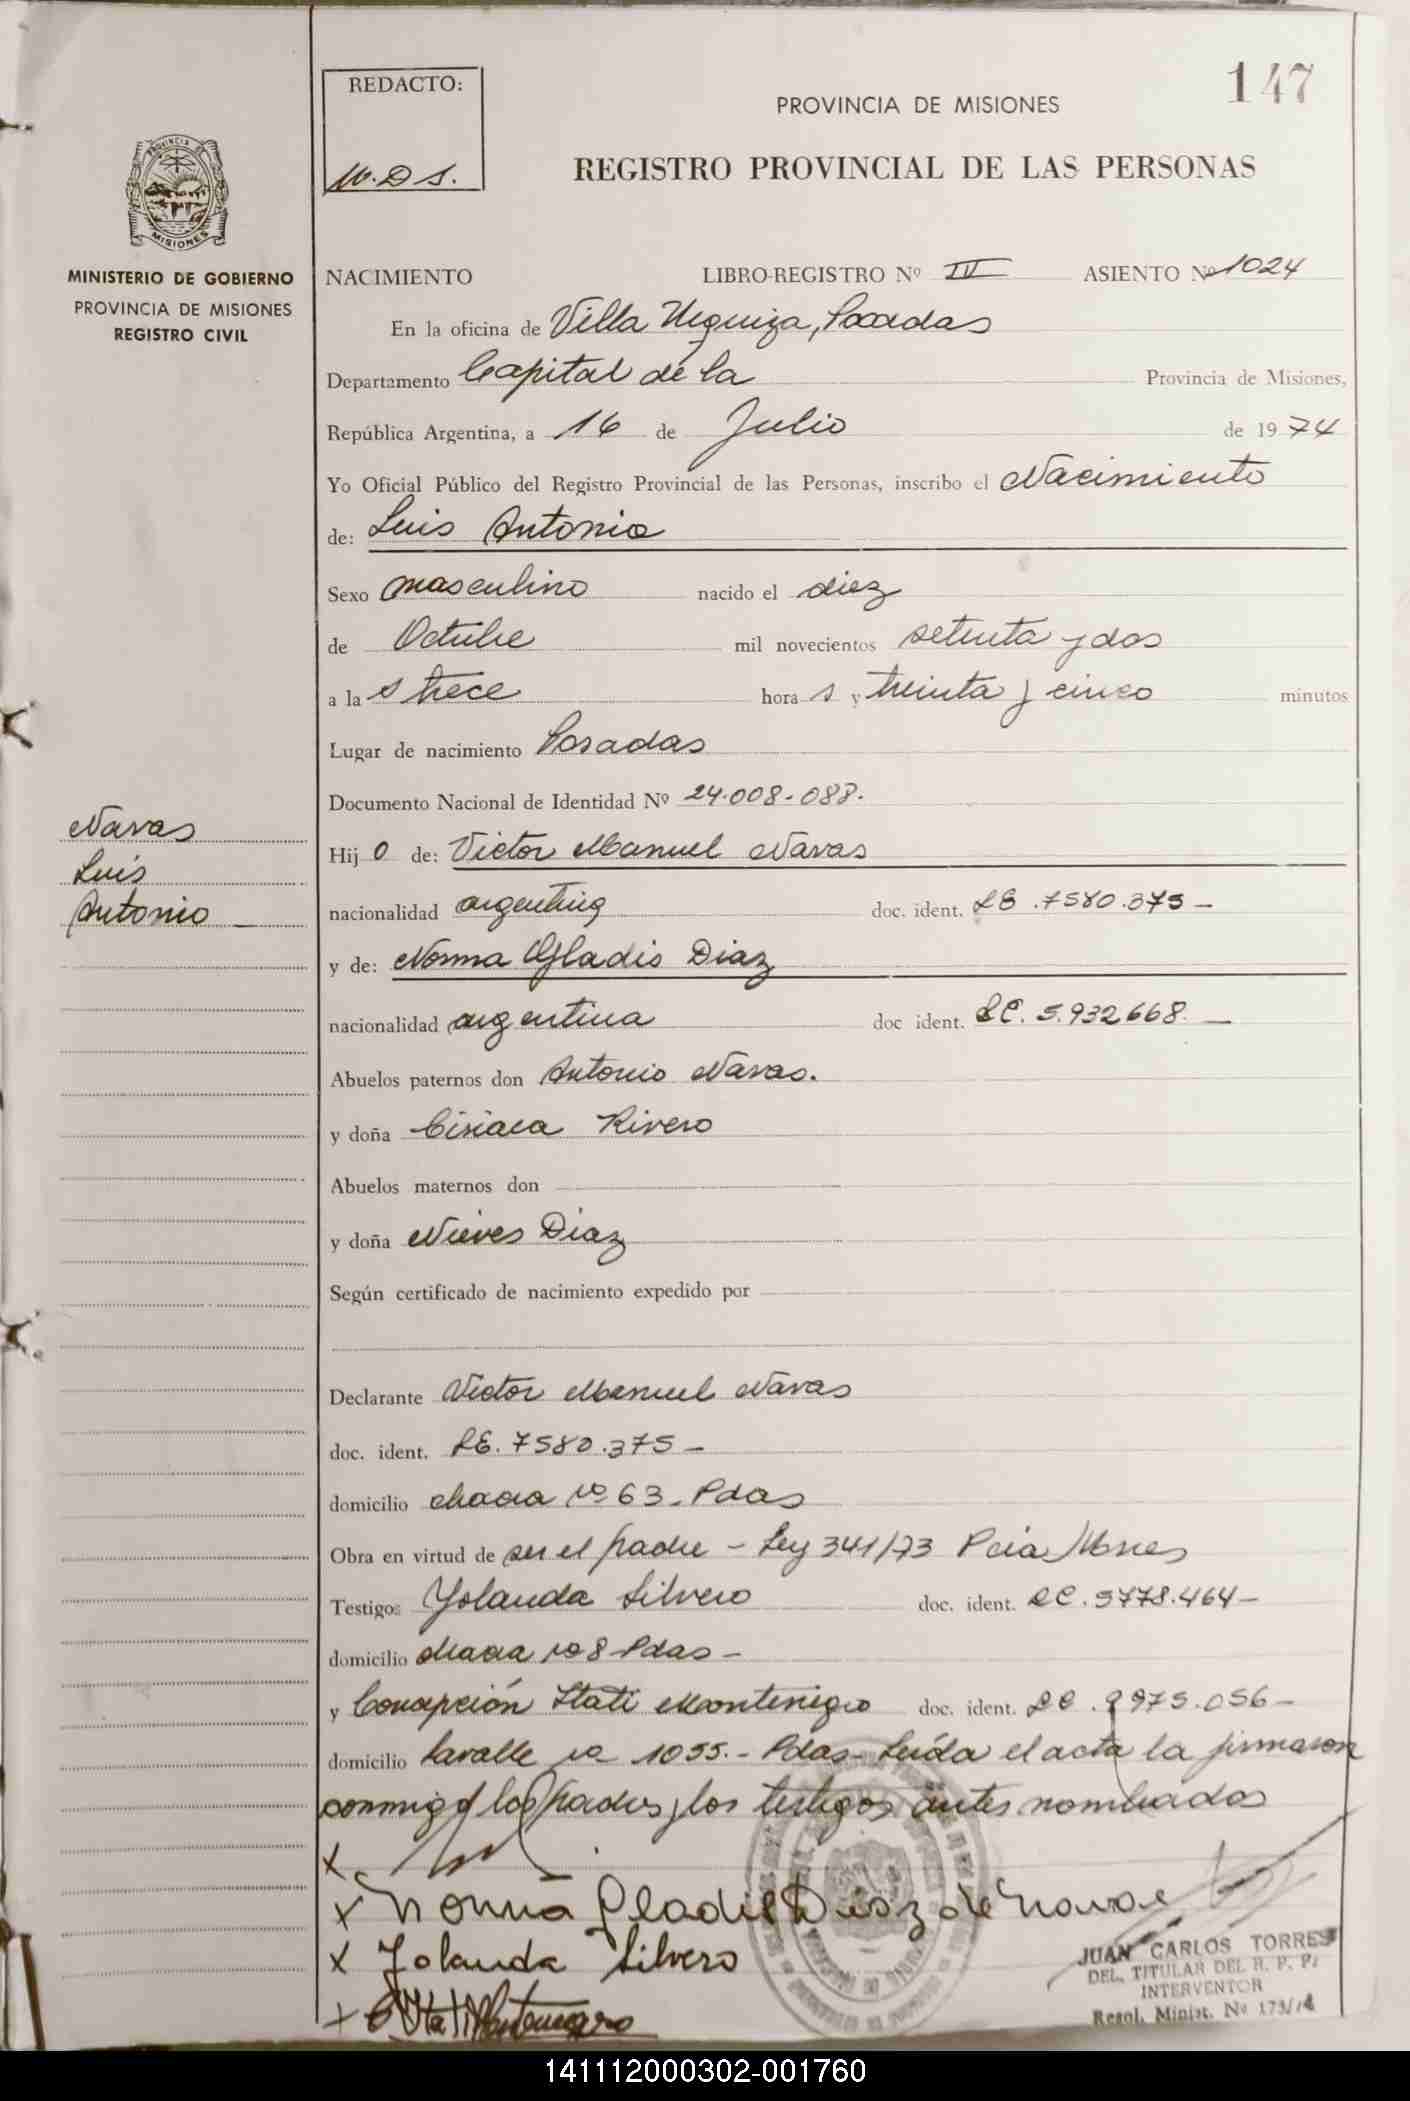 147
REDACTO:
W.D S.
PROVINCIA DE MISIONES
REGISTRO PROVINCIAL DE LAS PERSONAS
PROVINCIA DE
MISIONES
MINISTERIO DE GOBIERNO
PROVINCIA DE MISIONES
REGISTRO CIVIL
NACIMIENTO LIBRO-REGISTRO Nº IV ASIENTO Nº 1024
En la oficina de Villa Urquiza, Posadas
Departamento Capital de la Provincia de Misiones,
República Argentina, a 16 de Julio de 1974
Yo Oficial Público del Registro Provincial de las Personas, inscribo el Nacimiento
de: Luis Antonio
Sexo masculino nacido el diez
de Octubre mil novecientos setenta y dos
a la s trece hora s y treinta y cinco minutos
Lugar de nacimiento Posadas
Documento Nacional de Identidad Nº 24.008.088.
Navas
Luis
Antonio
Hij o de: Victor Manuel Navas
nacionalidad argentina doc. ident. LE. 7580.375-
y de: Norma Gladis Diaz
nacionalidad argentina doc ident. LC. 5.932668.-
Abuelos paternos don Antonio Navas.
y doña Ciriaca Rivero
Abuelos maternos don
y doña Nieves Diaz
Según certificado de nacimiento expedido por
Declarante Victor Manuel Navas
doc. ident. LE. 7580.375-
domicilio chacra no 63- Pdas
Obra en virtud de ser el padre - Ley 341/73 Pcia Mnes
Testigos Yolanda Silvero doc. ident. LC. 3778.464-
domicilio chacra no 8 Pdas-
y Concepción Itati Montenegro doc. ident. LC. 9975.056-
domicilio Lavalle no 1055.- Pdas- Leída el acta la firmaron
conmigo los padres y los testigos antes nombrados
X
X Norma Gladis Diaz de Navas
X Yolanda Silvero
X C Itati Montenegro
JUAN CARLOS TORRES
DEL. TITULAR DEL R. P. P.
INTERVENTOR
Resol. Minist. Nº 173/74
141112000302-001760